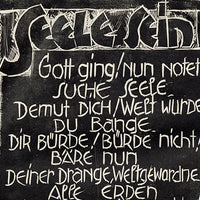 Seele sein
Gott ging/Nun notet
SUCHE SEELE.
Demut Dich/Welt wurde
DU BANGE.
DIR BÜRDE/BÜRDE nicht/
BÄRE nun
Deiner Drange, Weltgewordne
Alle Erden